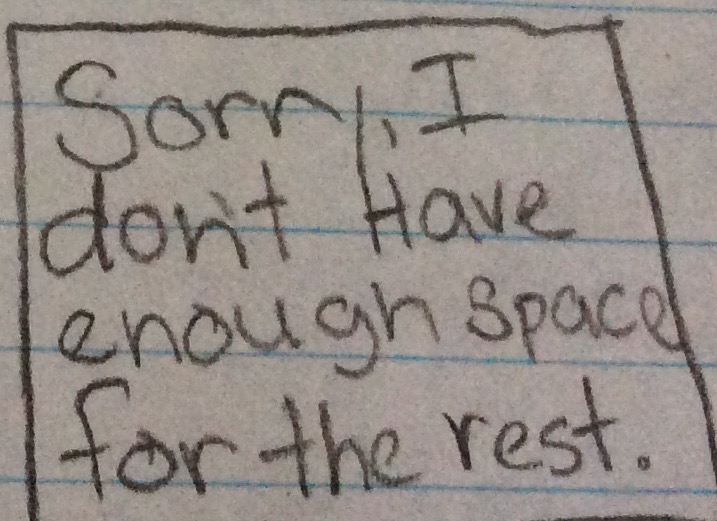 Sorry, I
don't Have
enough space
for the rest.